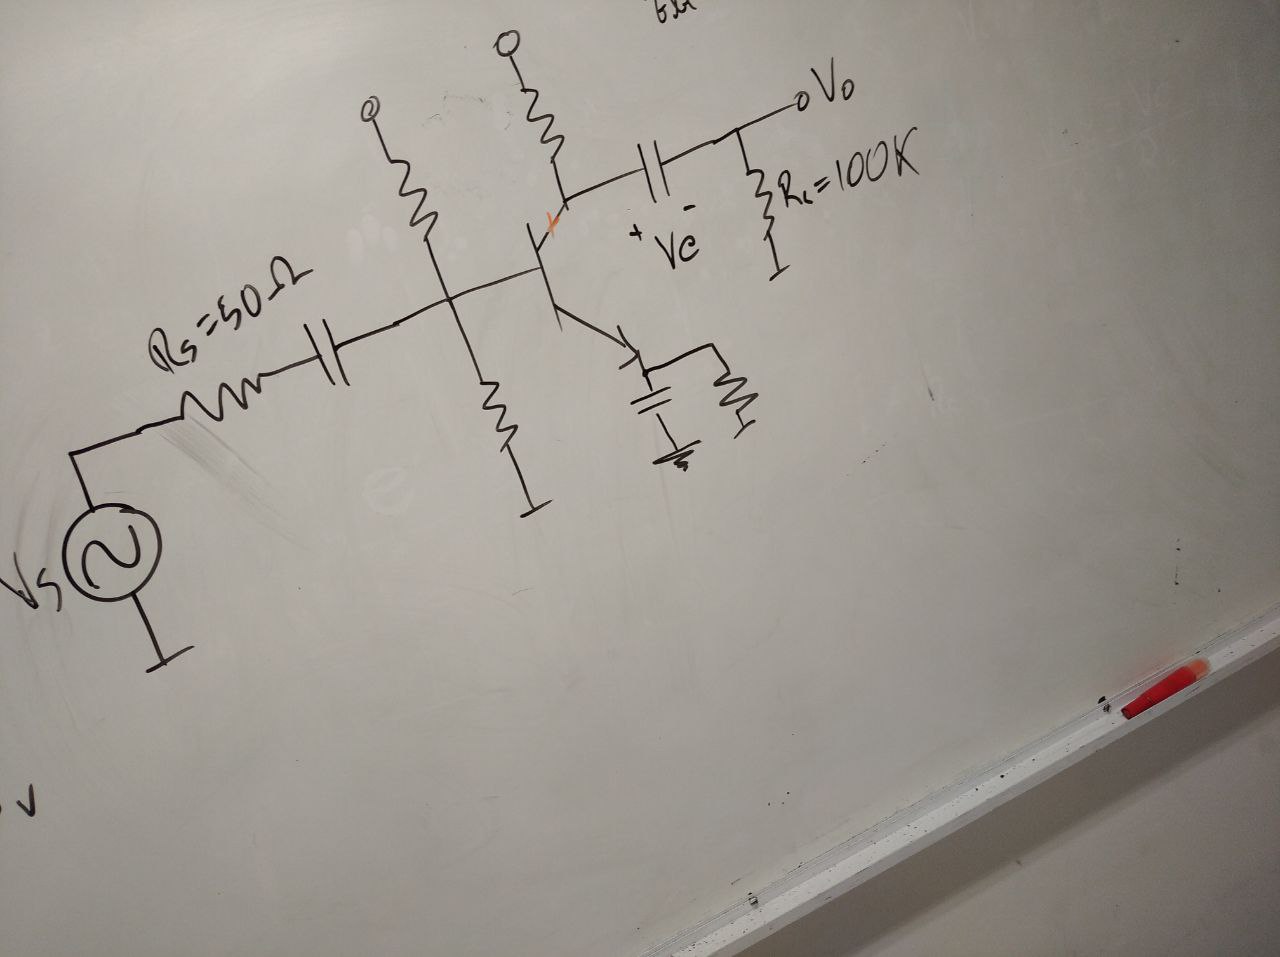 Vo
RL=100K
+ -
Vc
Rs=50Ω
Vs
V